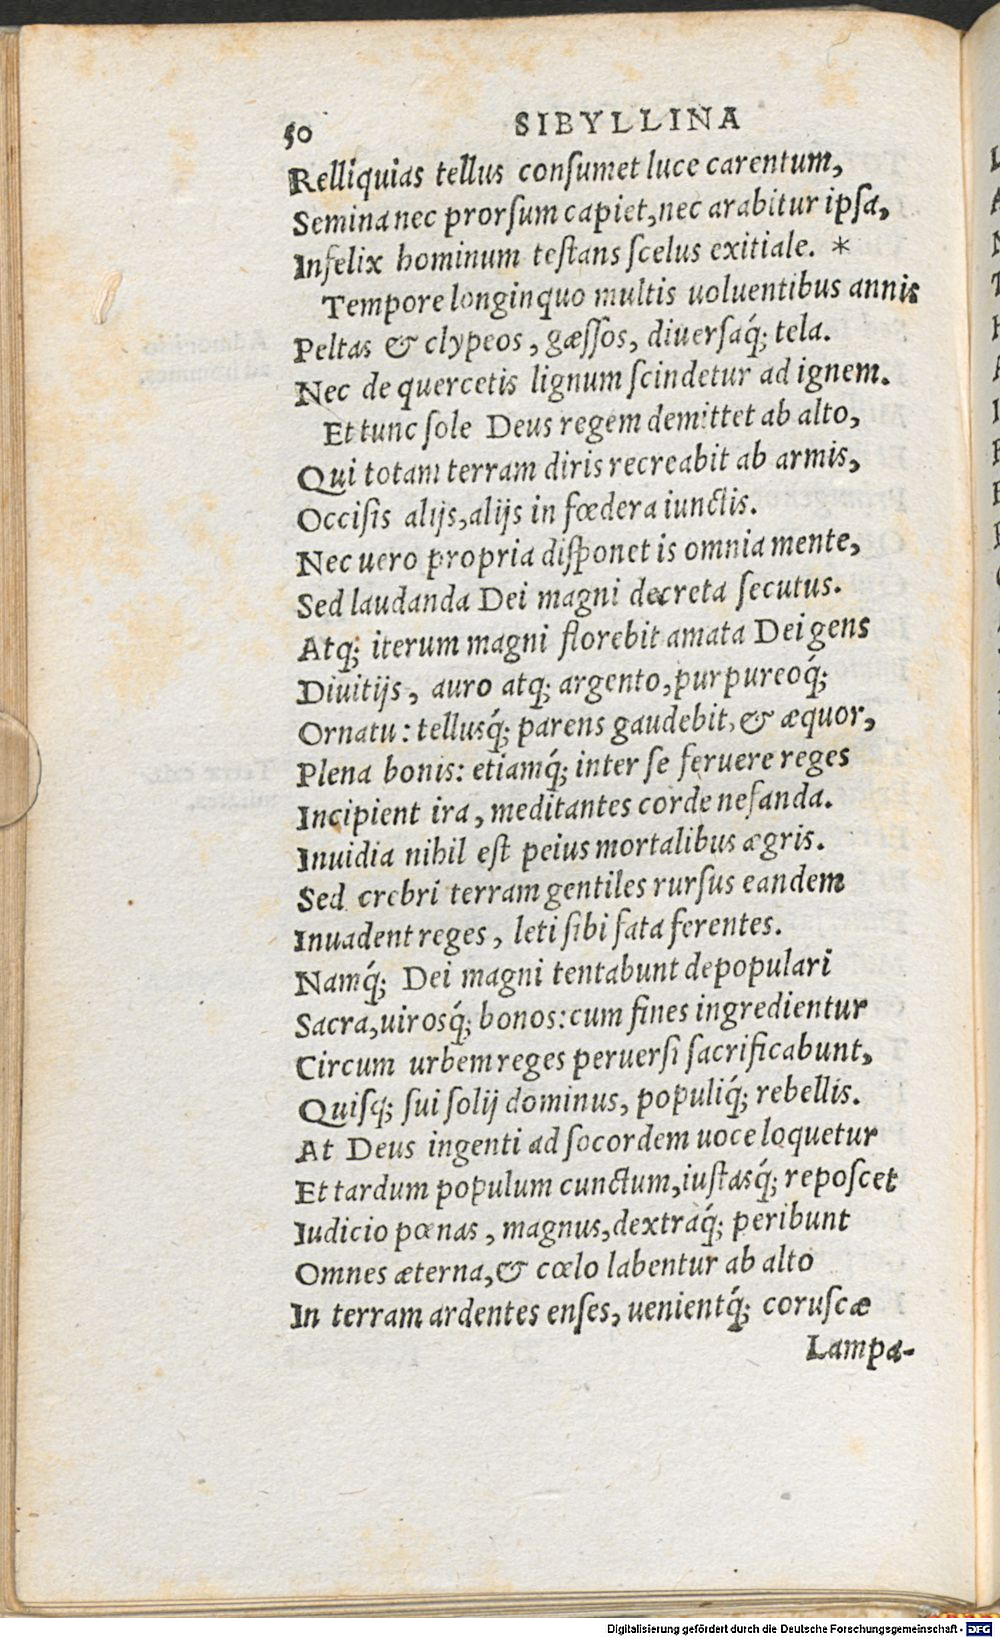 50 SIBYLLINA
Relliquias tellus conſumet luce carentum,
Semina nec prorſum capiet, nec arabitur ipſa,
Infelix hominum teſtans ſcelus exitiale. *
Tempore longinquo multis uoluentibus annis
Peltas & clypeos, gæſſos, diuerſaq́; tela.
Nec de quercetis lignum ſcindetur ad ignem.
Et tunc ſole Deus regem demittet ab alto,
Qui totam terram diris recreabit ab armis,
Occiſis alijs, alijs in fœdera iunctis.
Nec uero propria diſponet is omnia mente,
Sed laudanda Dei magni decreta ſecutus.
Atq; iterum magni florebit amata Dei gens
Diuitijs, auro atq; argento, purpureoq́;
Ornatu: tellusq́; parens gaudebit, & æquor,
Plena bonis: etiamq́; inter ſe feruere reges
Incipient ira, meditantes corde nefanda.
Inuidia nihil eſt peius mortalibus ægris.
Sed crebri terram gentiles rurſus eandem
Inuadent reges, leti ſibi fata ferentes.
Namq́; Dei magni tentabunt depopulari
Sacra, uirosq́; bonos: cum fines ingredientur
Circum urbem reges peruerſi ſacrificabunt,
Quiſq; ſui ſolij dominus, populiq́; rebellis.
At Deus ingenti ad ſocordem uoce loquetur
Et tardum populum cunctum, iuſtasq́; repoſcet
Iudicio pœnas, magnus, dextraq́; peribunt
Omnes æterna, & cœlo labentur ab alto
In terram ardentes enſes, uenientq́; coruſcæ
Lampa-
Digitalisierung gefördert durch die Deutsche Forschungsgemeinschaft - DFG